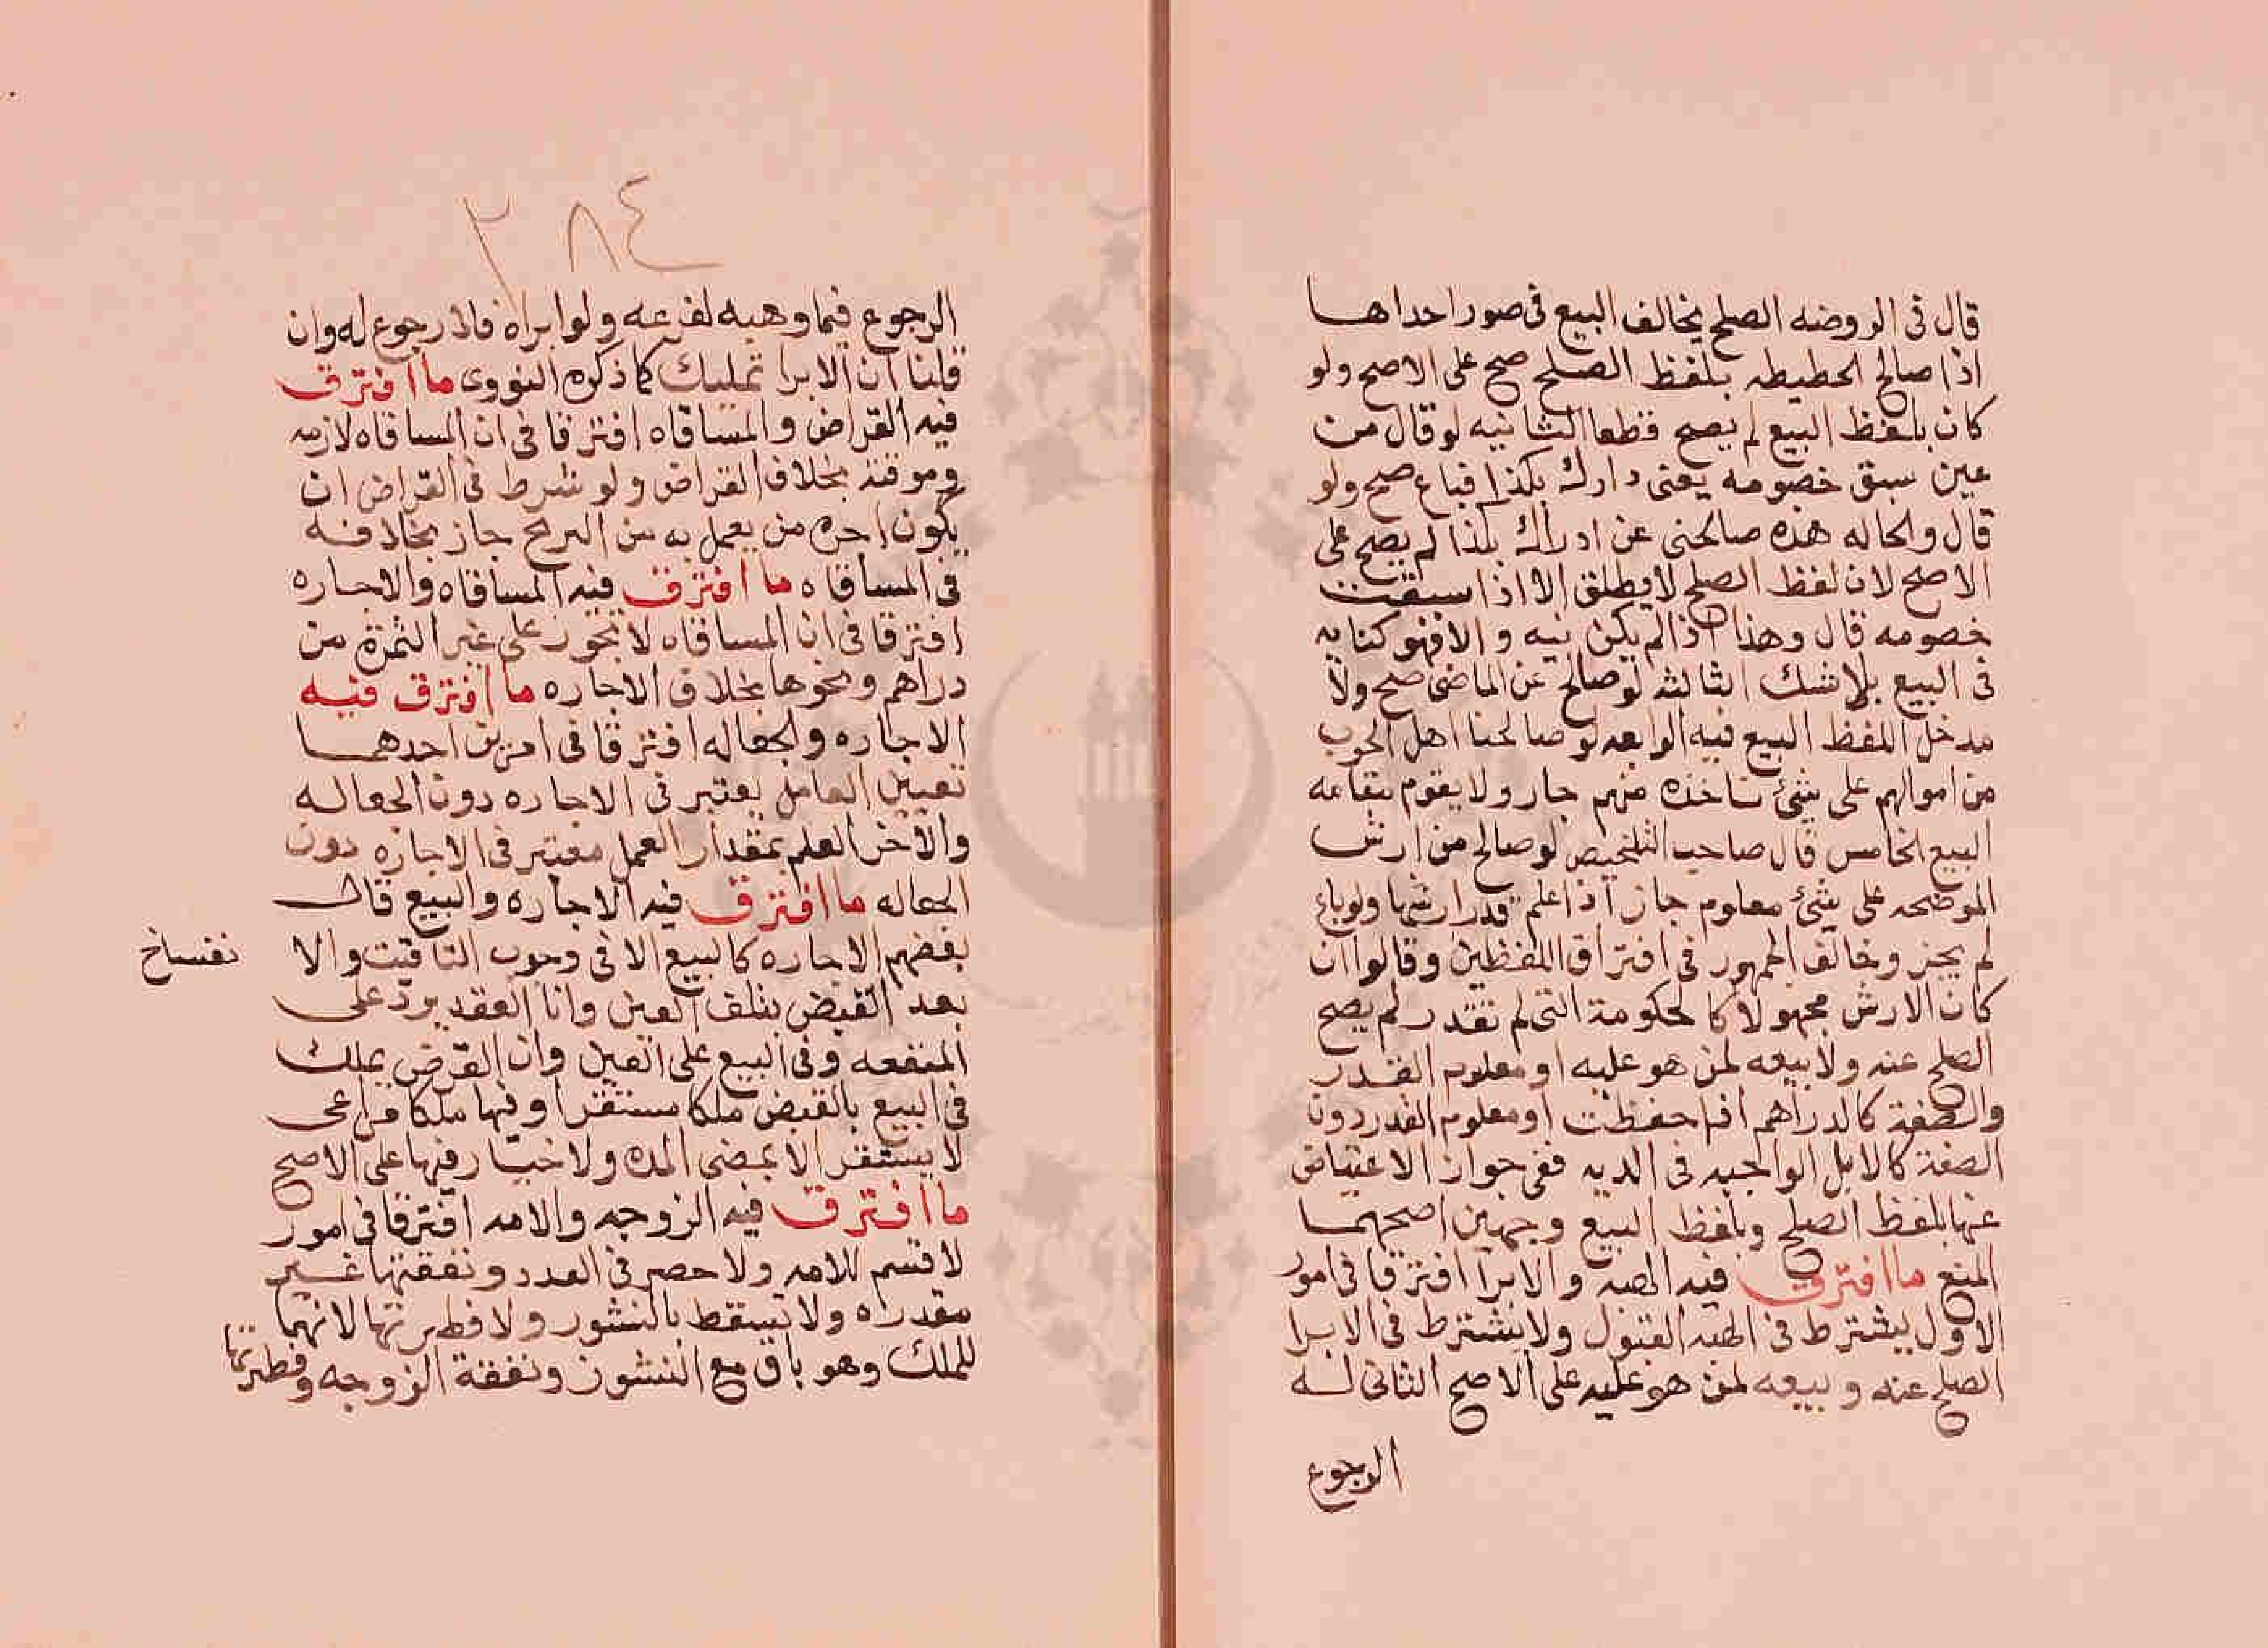 قال فى الروضه الصلح يخالف البيع فى صور احداها
اذا صالح الحطيطه بلفظ الصلح صح على الاصح ولو
كان بلفظ البيع لم يصح قطعا الثانيه لو قال من
غير سبق خصومه يعنى دارك بكذا فباع صح ولو
قال والحاله هذه صالحنى عن ادراك بكذا لم يصح على
الاصح لان لفظ الصلح لا يطلق الا اذا سبقت
خصومه قال وهذا اذا لم يكن نيه والا فهو كنايه
فى البيع بلا شك الثالثه لو صالح عن الماضى صح ولا
مدخل للفظ البيع فيه الرابعه لو صالحنا اهل الحرب
من اموالهم على شئ ناخذه منهم جاز ولا يقوم مقامه
البيع الخامس قال صاحب التلخيص لو صالح من ارش
الموضحه على شئ معلوم جاز اذا علم قدر ارشها ولو باع
لم يجز وخالف الجمهور فى افتراق اللفظين وقالوا ان
كان الارش مجهولا كالحكومة التى لم تقدر لم يصح
الصلح عنه ولا بيعه لمن هو عليه او معلوم القدر
والصفة كالدراهم اذا حفظت او معلوم القدر دون
الصفة كالابل الواجبه فى الديه ففى جواز الاعتياض
عنها بلفظ الصلح وبلفظ البيع وجهين اصحهما
المنع ما افترق فيه الهبه والابرا افترقا فى امور
الاول يشترط فى الهبه القبول ولا يشترط فى الابرا
الصلح عنه وبيعه لمن هو عليه على الاصح الثانى له
الرجوع
٢٨٤
الرجوع فيما وهبه لفرعه ولو ابراه فلا رجوع له وان
قلنا ان الابرا تمليك كما ذكره النووى ما افترق
فيه القراض والمساقاه افترقا فى ان المساقاه لازمه
وموقتة بخلاف القراض ولو شرط فى القراض ان
يكون اجره من يعمل به من الربح جاز بخلافه
فى المساقاه ما افترق فيه المساقاه والاجاره
افترقا فى ان المساقاه لا تجوز على غير الثمرة من
دراهم ونحوها بخلاف الاجاره ما افترق فيه
الاجاره والجعاله افترقا فى امرين احدهما
تعيين العامل يعتبر فى الاجاره دون الجعاله
والاخر العلم بمقدار العمل معتبر فى الاجاره دون
الجعاله ما افترق فيه الاجاره والبيع قال
بعضهم الاجاره كالبيع الا فى وجوب التاقيت والا نفساخ
بعد القبض بتلف العين وانا العقد يرد على
المنفعه وفى البيع على العين وان القرض يملك
فى البيع بالقبض ملكا مستقرا وفيها ملكا مراعى
لا يستقر الا بمضى المده ولا خيار فيها على الاصح
ما افترق فيه الزوجه والامه افترقا فى امور
لا قسم للامه ولا حصر فى العدد ونفقتها غير
مقدراه ولا تسقط بالنشوز ولا فطرتها لانهما
للملك وهو باق مع النشوز ونفقة الزوجه وفطرتها